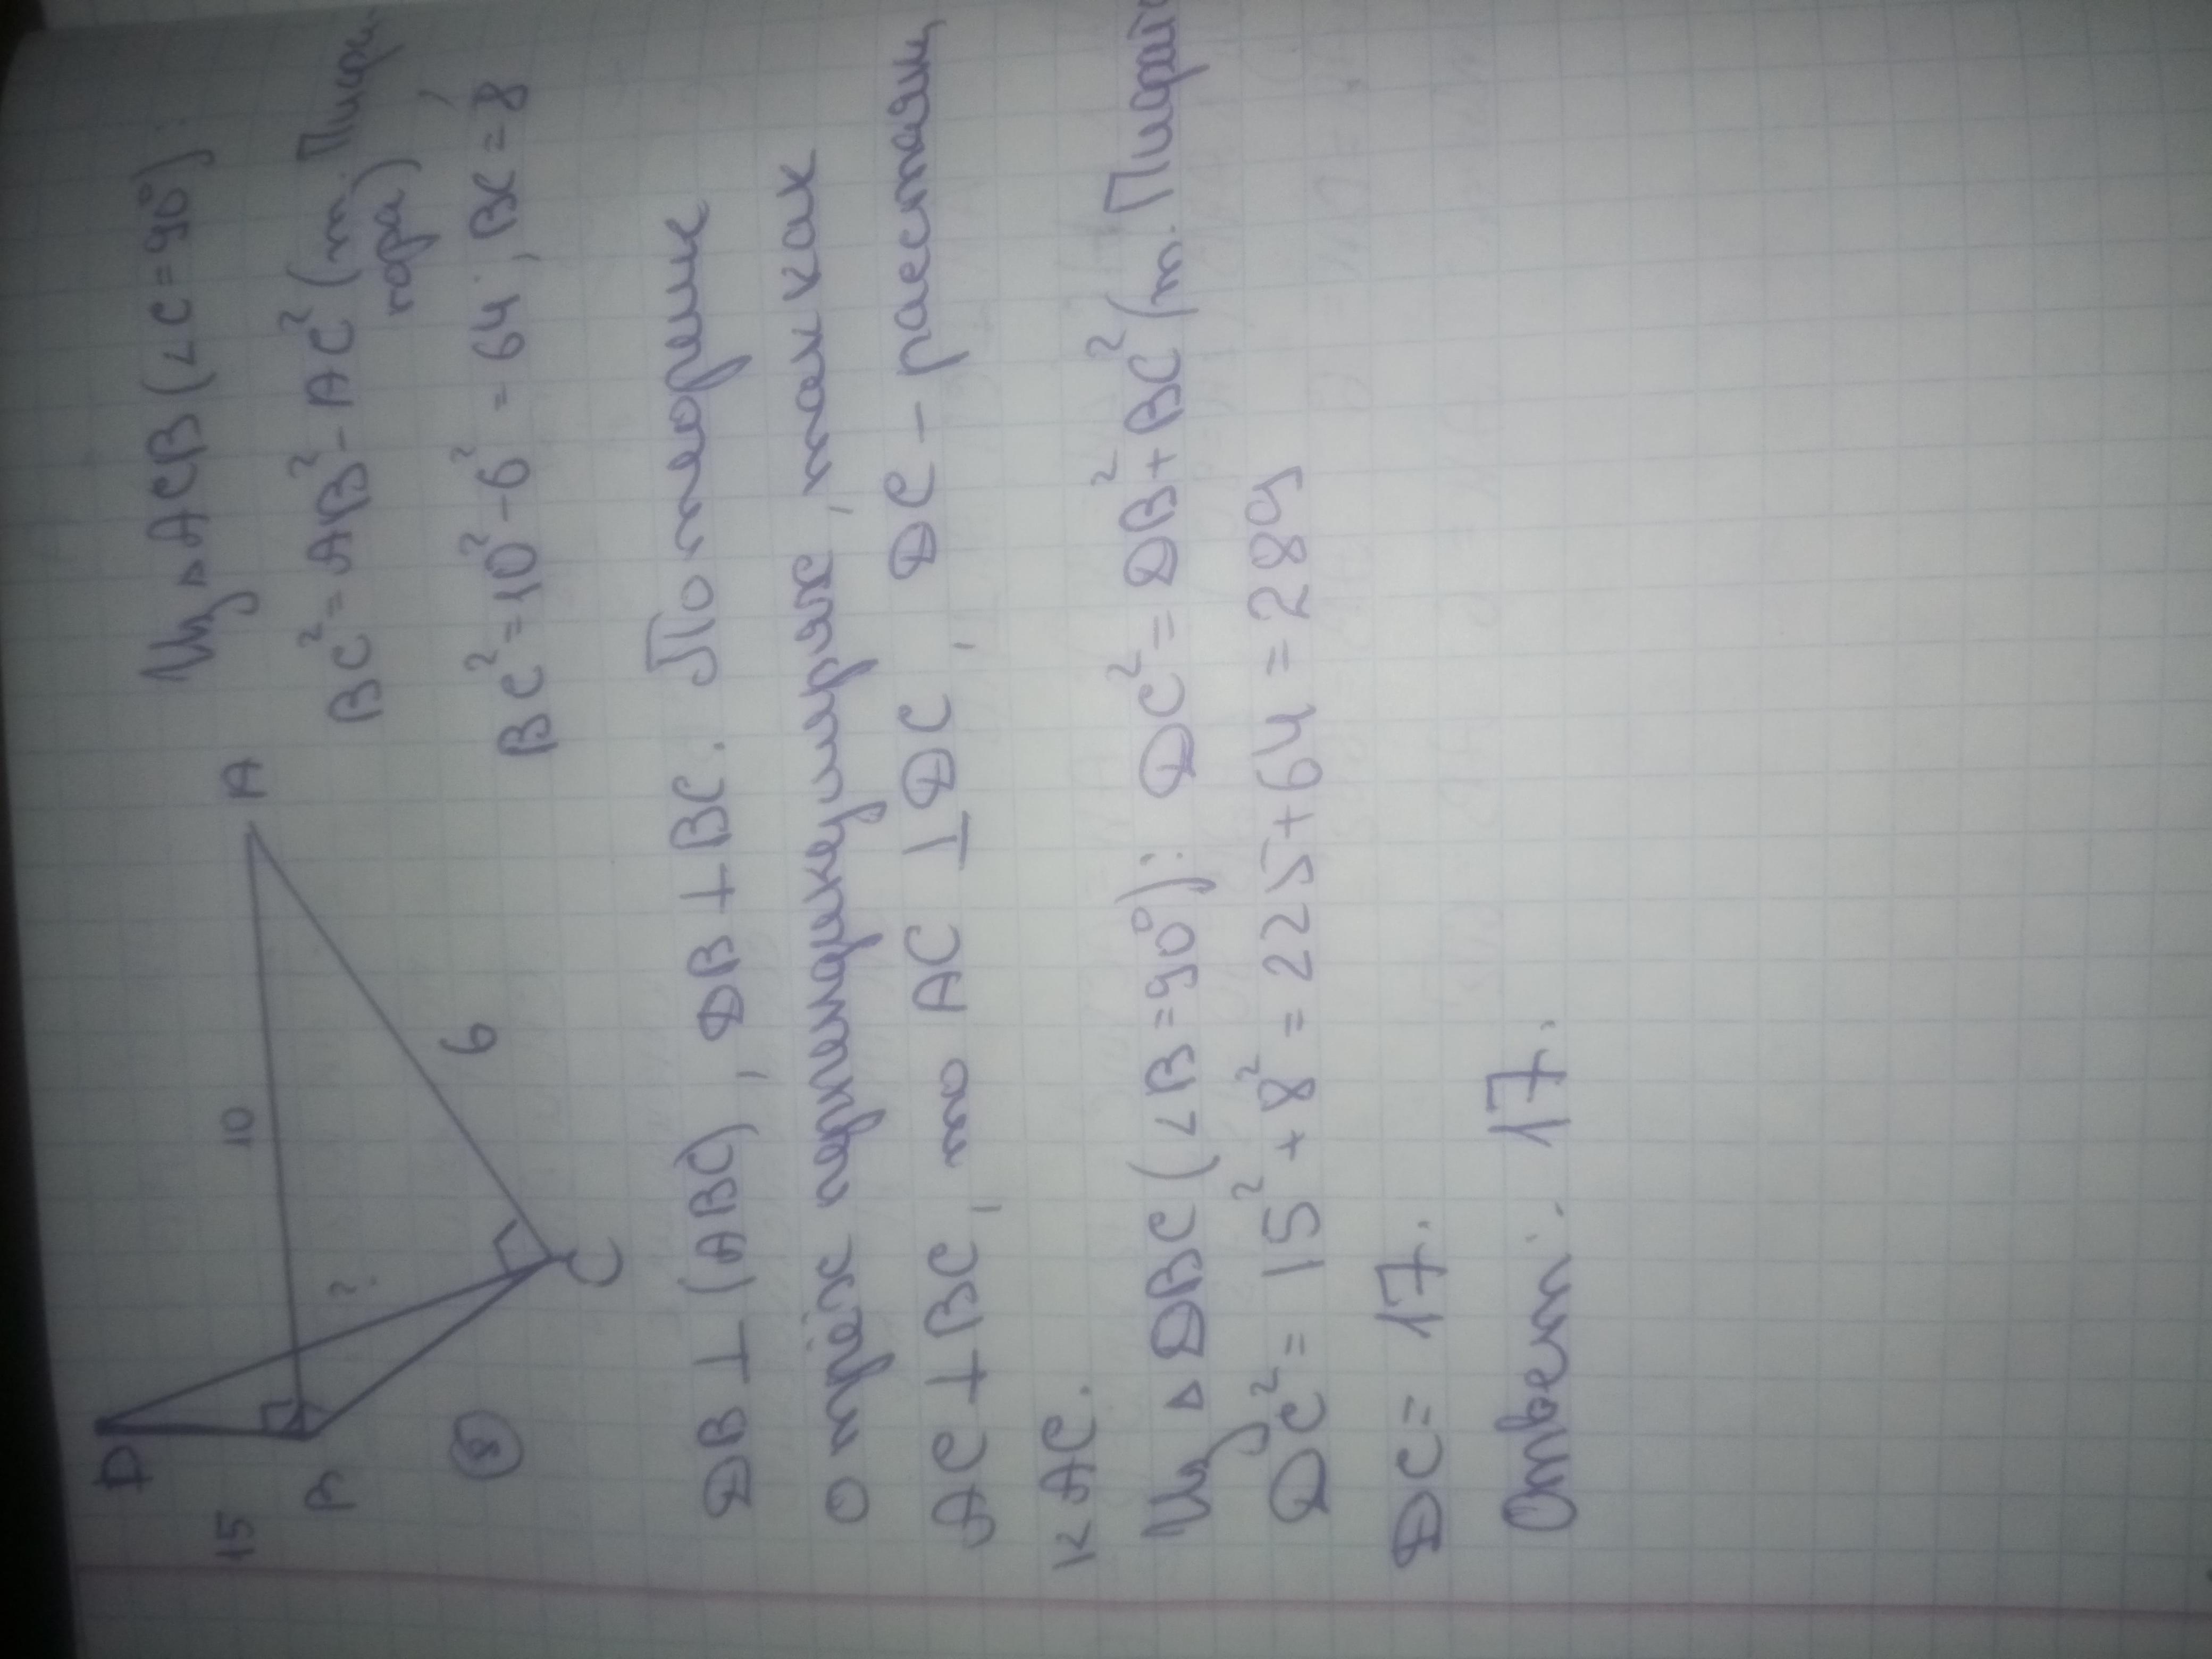 D
A
10
15
B
?
6
8
C
Из △ACB (∠C=90°):
BC²=AB²-AC² (т. Пифа
гора),
BC²=10²-6²=64; BC=8
DB⊥(ABC), DB⊥BC. По теореме
о трёх перпендикулярах, так как
AC⊥BC, то AC⊥DC, DC - расстояни
к AC.
Из △DBC (∠B=90°): DC²=DB²+BC² (т. Пифаг
DC²=15²+8²=225+64=289
DC=17.
Ответ: 17.